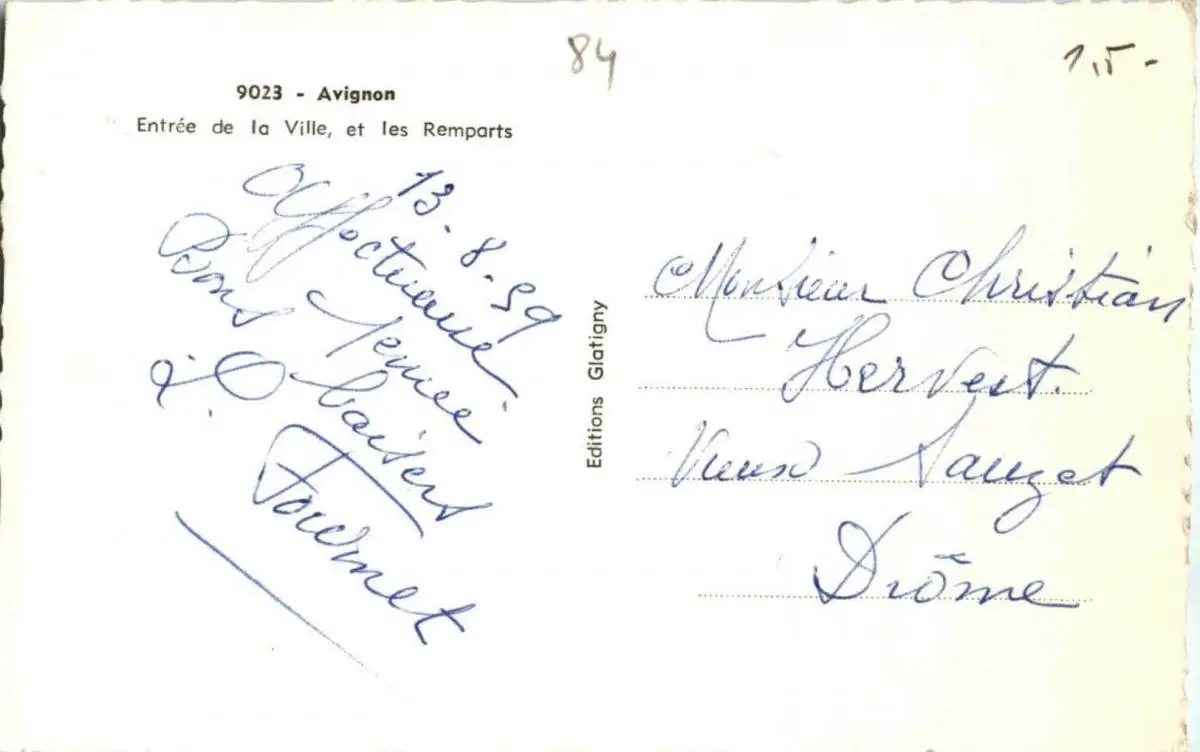 84
1,5-
9023 - Avignon
Entrée de la Ville, et les Remparts
13-8-59
Affectueuse
Pensée
Bons baisers
Fournet
Editions Glatigny
Monsieur Christian
Hervest.
Vieux Sauzet
Drôme